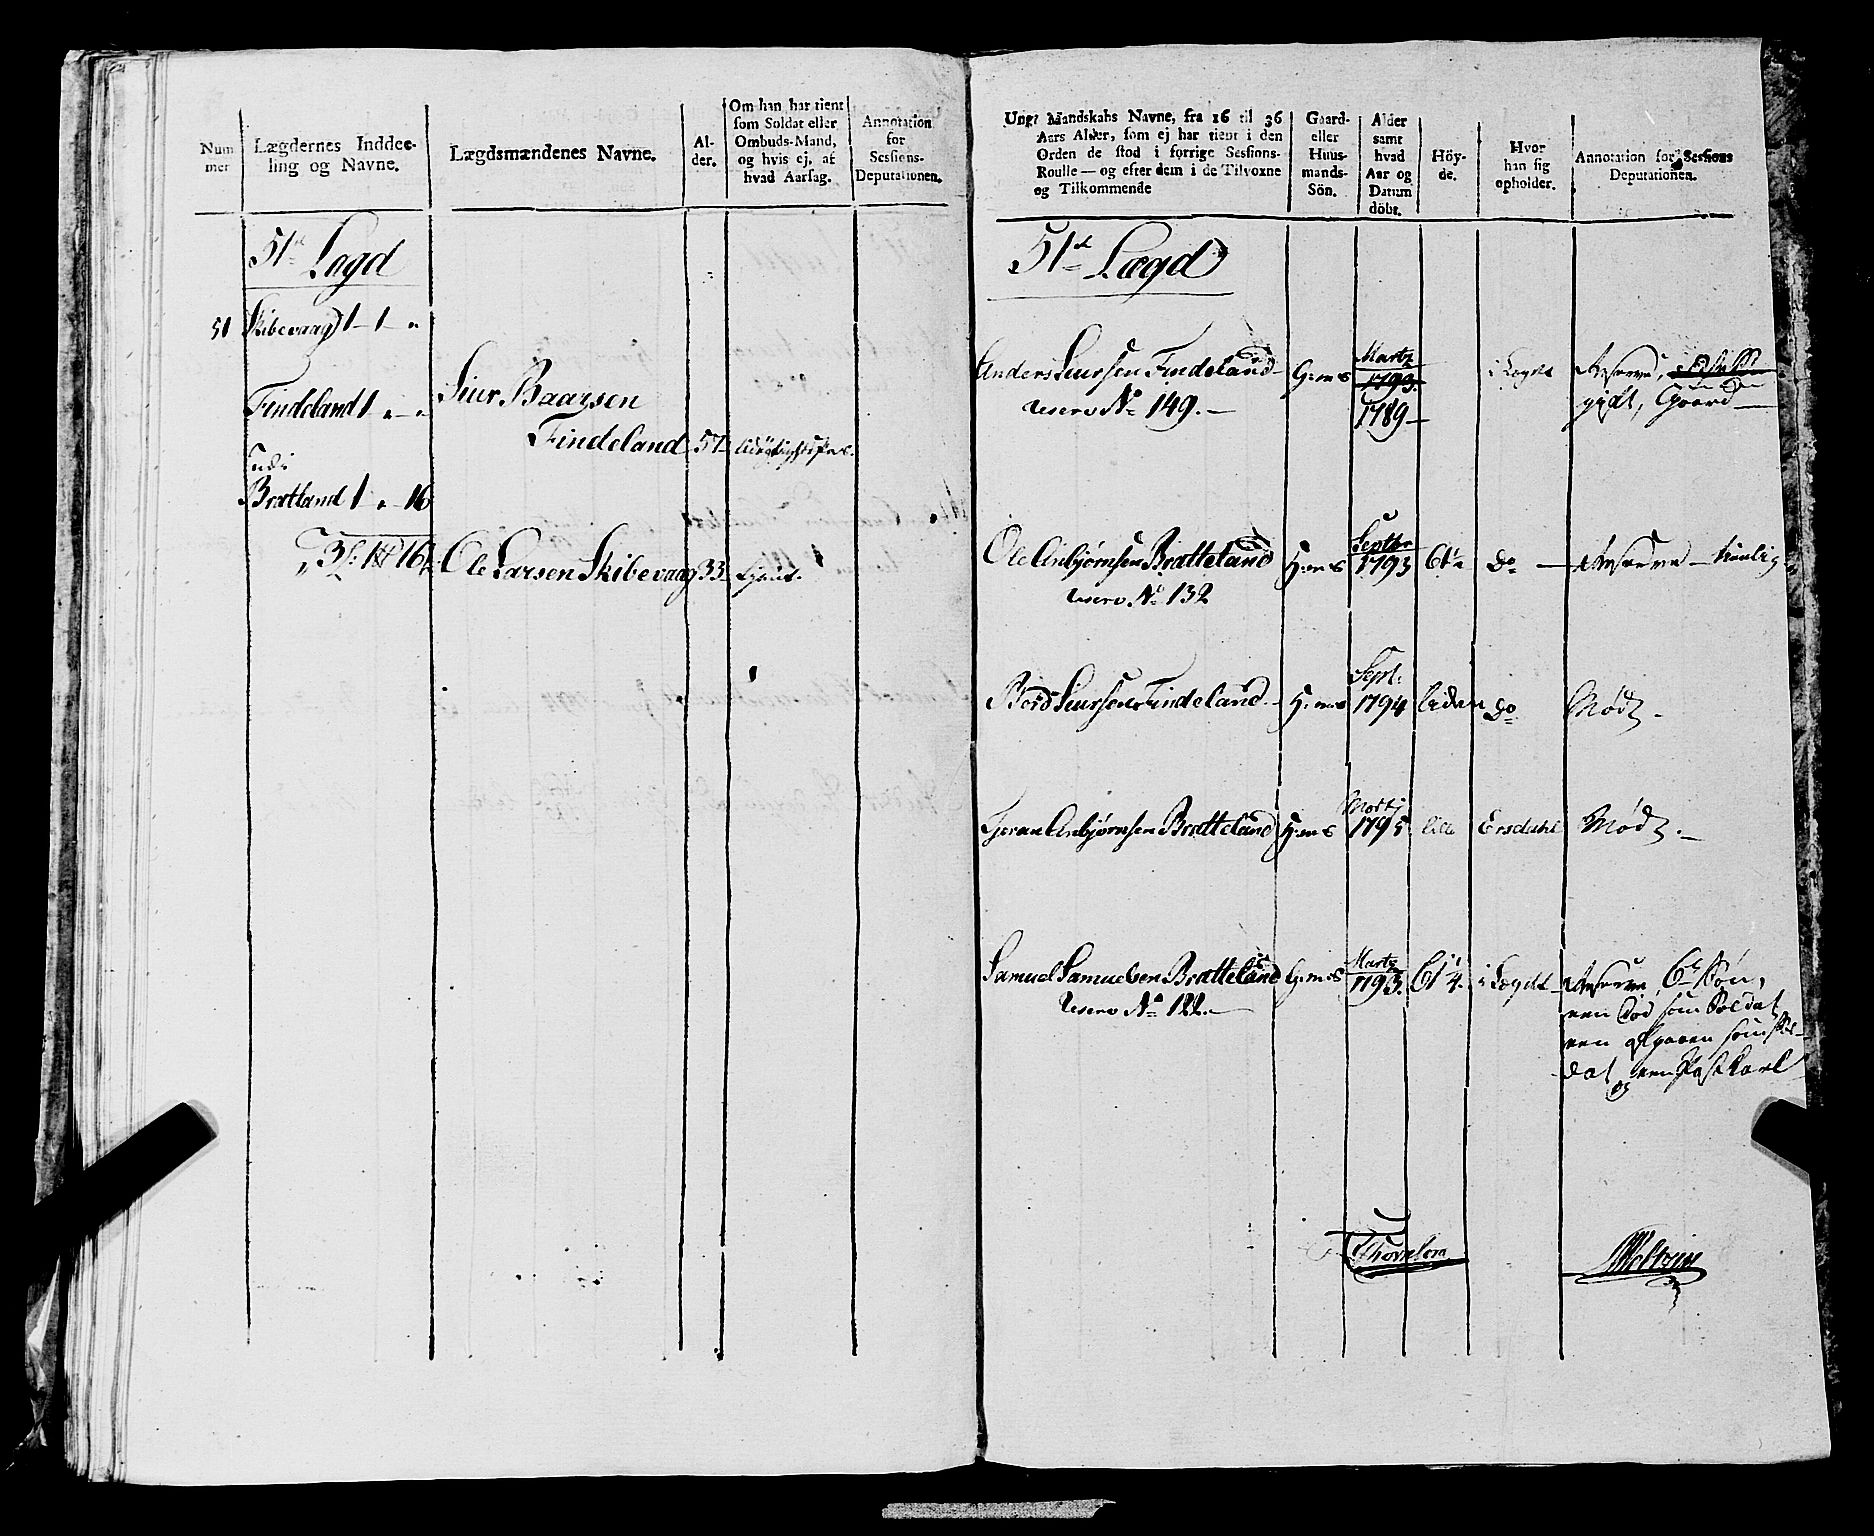 Num
mer
Lægdernes Inddee-
ling og Navne.
Lægdsmændenes Navne.
Al-
der.
Om han har tient
som Soldat eller
Ombuds-Mand,
og hvis ej, af
hvad Aarsag.
Annotation
for
Sessions-
Deputationen.
51de Lægd
51 Skibevaag 1 - 1 - "
Findeland 1 " - "
Siur Baarsen
Findeland 57
Bratland 1 " 16
Ole Larsen Skibevaag 33
Unge Mandskabs Navne, fra 16 til 36
Aars Alder, som ej har tient i den
Orden de stod i forrige Sessions-
Roulle — og efter dem i de Tilvoxne
og Tilkommende
Gaard-
eller
Huus-
mands-
Sön.
Alder
samt
hvad
Aar og
Datum
döbt.
Höy-
de.
Hvor
han sig
opholder.
Annotation for Sessions
Deputationen.
51de Lægd
Anders Siursen Findeland G:m S Martz 1793 i Lægdet Reserve,
reserv No 149. 1789 gift, Gaard
Ole Anbjørnsen Bratteland H:m S Septbr 1793 61½ do Reserve
reserv. No 132
Bord Siursen Findeland H:m S Sept: 1794 liden do Mødt.
Anbjørnsen Bratteland H:m S Martj 1795 lille Ersdahl Mødt.
Samuel Samuelsen Bratteland G:m S Martz 1793. 61¼. i Lægdet Reserve, 6te Søn,
reserv No 122. een død som Soldat
een som Sol-
dat og een